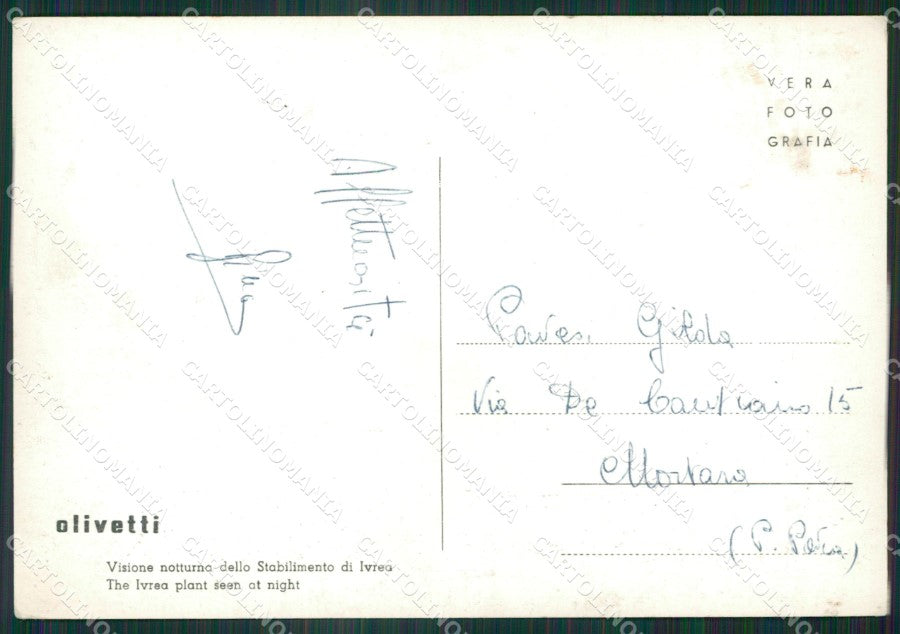 VERA
FOTO
GRAFIA
Affettuosità
Pavesi Gilda
Via De Cantiano 15
Mortara
(P. Pavia)
olivetti
Visione notturna dello Stabilimento di Ivrea
The Ivrea plant seen at night
CARTOLINOMANIA